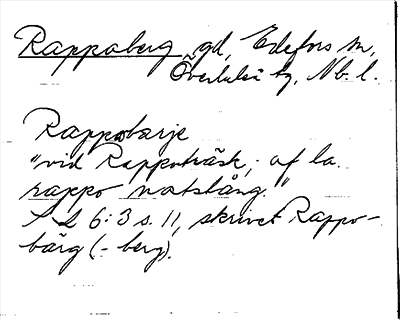 Rappaberg, gd, Edefors sn,
Överluleå tg, Nb. l.
Rappobärje
"vid Rappoträsk; af la.
rappo notstång."
SL 6:3 s. 11, skrivet Rappo-
bärg (-berg).